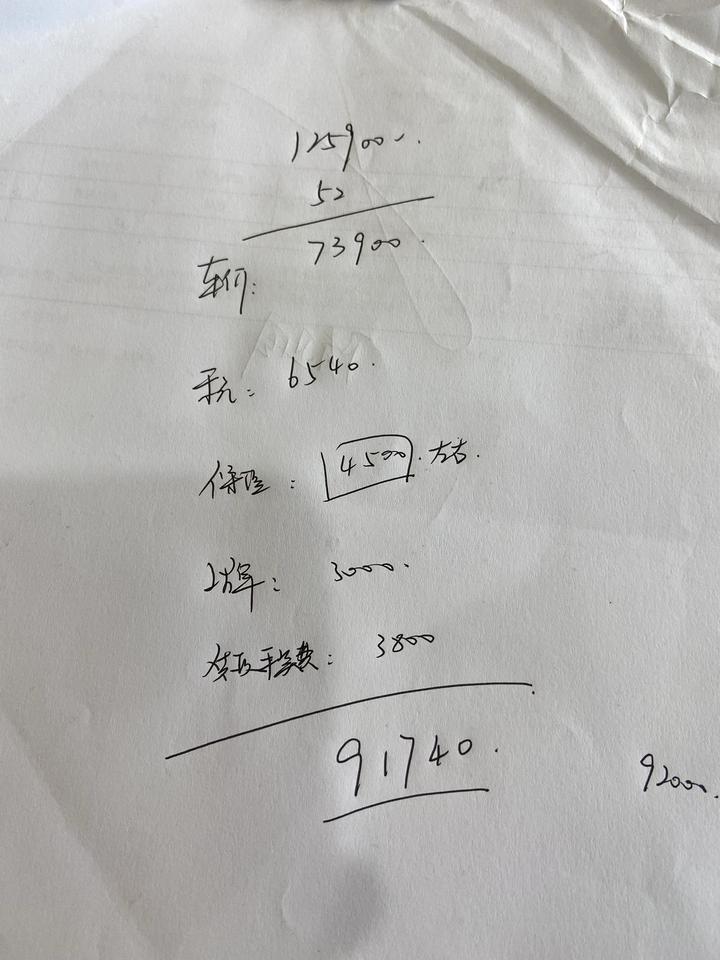 125900.
52
73900.
车价:
税: 6540.
保险: 4500. 左右.
上牌: 3000.
贷款手续费: 3800
91740.
92000.